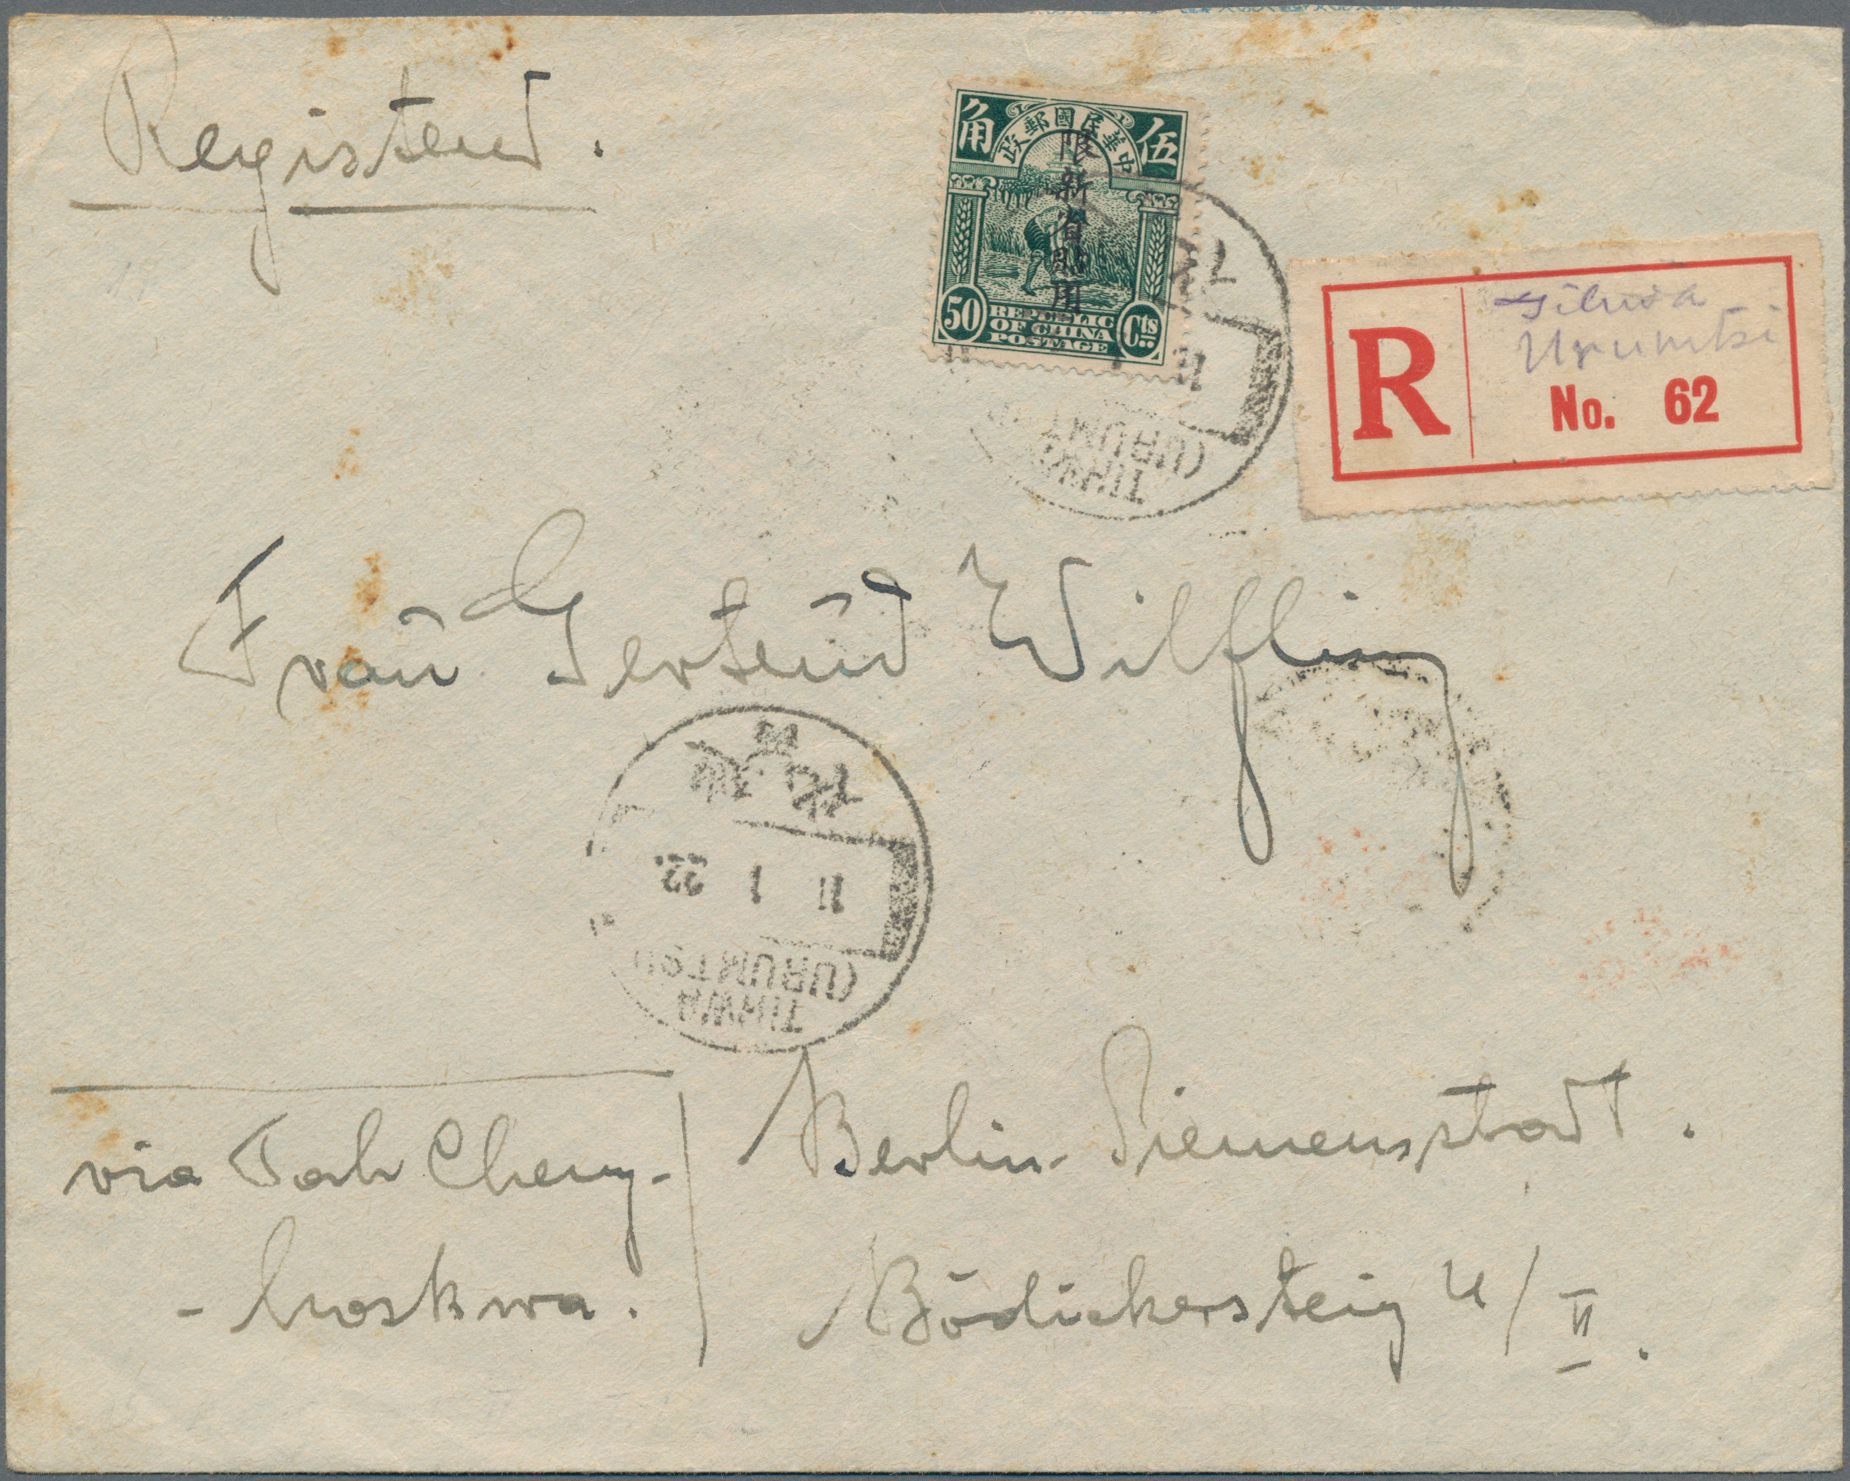 Registered.
角 政郵國民華中 伍
限新省貼用
50 REPUBLIC Cts
OF CHINA
POSTAGE
11
(URUMT
TIHWA
R
Tihwa
Urumtsi
No. 62
Frau Gertrud Wilfling
迪化
11 1 22
(URUMTSI
TIHWA
via Tah Cheng-
- Moskwa.
Berlin-Siemensstadt.
Bödickersteig 4/II.